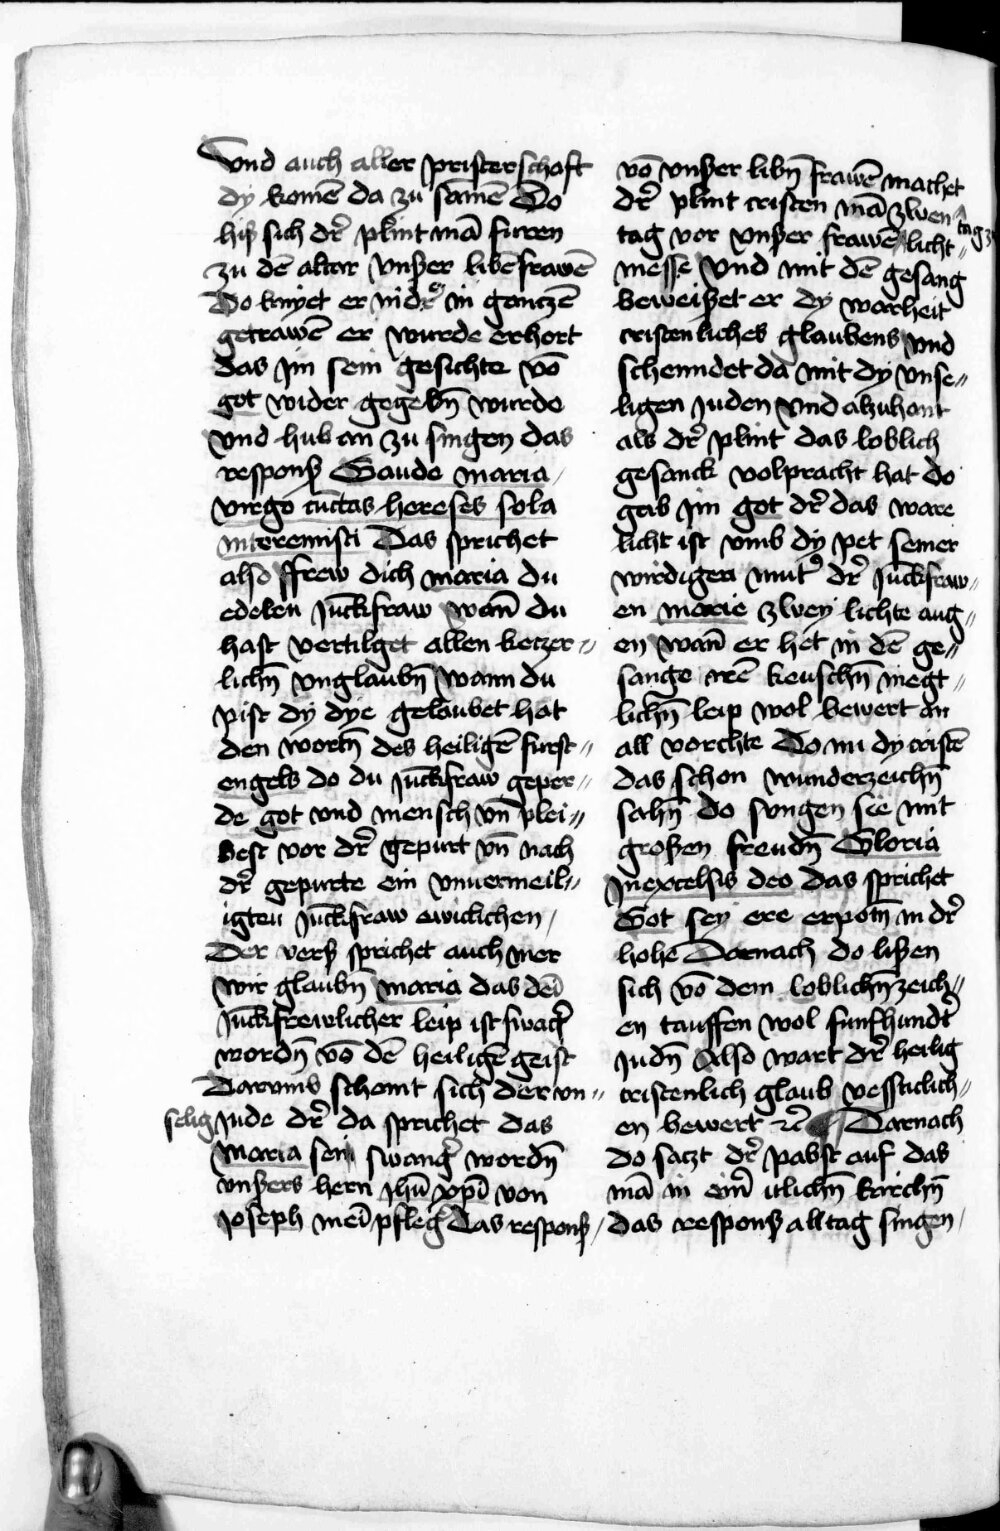 Vnd auch aller pristerschaft
dy komē da zu samē Do
hiß sich dr̄ plint mā furen
zu dē altar Vnßer libē frawē
Do knyet er nidr̄ in gantzē
getrawē er wurde erhort
das Jm sein gesichte vō
got wider gegebn̄ wurde
Vnd hub an zu singen das
respons Gaude maria
virgo cūctas hereses sola
interemisti Das sprichet
also ffrew dich maria du
edelen Juckfraw wan̄ du
hast vertilget allen ketzer〃
lichn̄ vnglaubn̄ wann du
pist dy dye gelaubet hat
den wortn̄ des heiligē furst〃
engels do du Juckfraw geper〃
de got vnd mensch vn̄ plei〃
best vor dr̄ gepurt vn̄ nach
dr̄ gepurte ein vnuermeil〃
igten Juckfraw ewiclichen
Der verß sprichet auch mer
wir glaubn̄ maria das dei
Juckfrewlicher leip ist swāgr̄
wordn̄ vō dē heiligē geist
Darvmb schemt sich der vn〃
selig Jude dr̄ da sprichet das
Maria sey swangr̄ wordn̄
vnßers hern Jhū xpī von
Joseph mei pflegr̄ Das respons
vō vnßer libn̄ frawē machet
dr̄ plint cristen mā zwen
tag vor vnßer frawē licht〃 tag zu
messe Vnd mit dē gesang
beweißet er dy warheit
cristenliches glaubens vnd
schenndet da mit dy vnse〃
ligen Juden vnd alzuhant
als dr̄ plint das loblich
gesanck volpracht hat do
gab Jm got dr̄ das ware
licht ist vmb dy pet seiner
wirdigen mutr̄ dr̄ Juckfraw〃
en marie zwey lichte aug〃
en wan̄ er het in dē ge〃
sange irē keuschn̄ megt〃
lichn̄ leip wol bewert an
all vorchte Do nu dy cristē
das schon wunderzeichn̄
sachn̄ do sungen sie mit
großen freudn̄ Gloria
Jnexcelsis deo das sprichet
Got sey ere erpotn̄ in dr̄
hohē Darnach do lißen
sich vō dem loblichn̄ zeich〃
en tauffen wol funfhundr̄t
Judn̄ Also wart dr̄ heilig
cristenlich glaub vesticlich〃
en bewert ꝛc̄ Darnach
do satzt dr̄ pabst auf das
mā in eim̄ itlichn̄ kirchn̄
das respons alltag singen